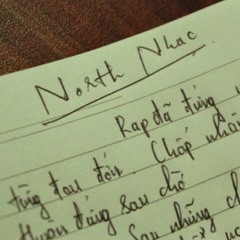 North Nhac
Rap đã đứng
từng đau đớn. Chấp nhận
đứng sau chờ
Sau những ch